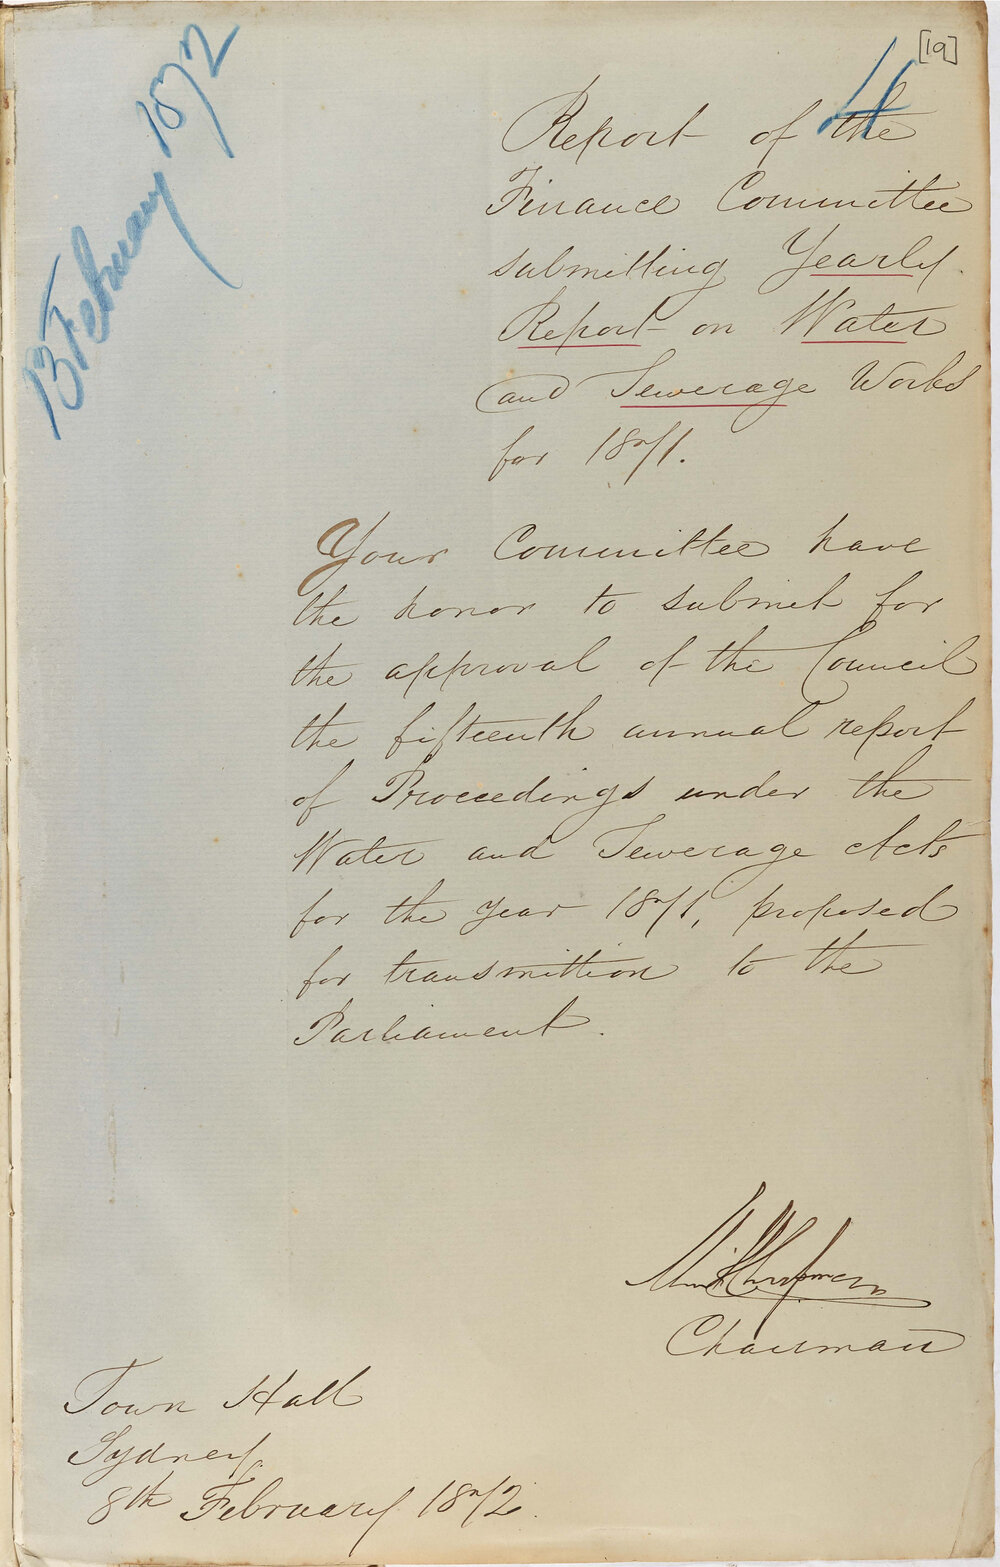 [19]
4
13 February 1872
Report of the
Finance Committee
submitting Yearly
Report on Water
and Sewerage Works
for 1871.
Your Committee have
the honor to submit for
the approval of the Council
the fifteenth annual report
of Proceedings under the
Water and Sewerage Acts
for the year 1871, proposed
for transmittion to the
Parliament.
Chapman
Chairman
Town Hall
Sydney
8th February 1872.